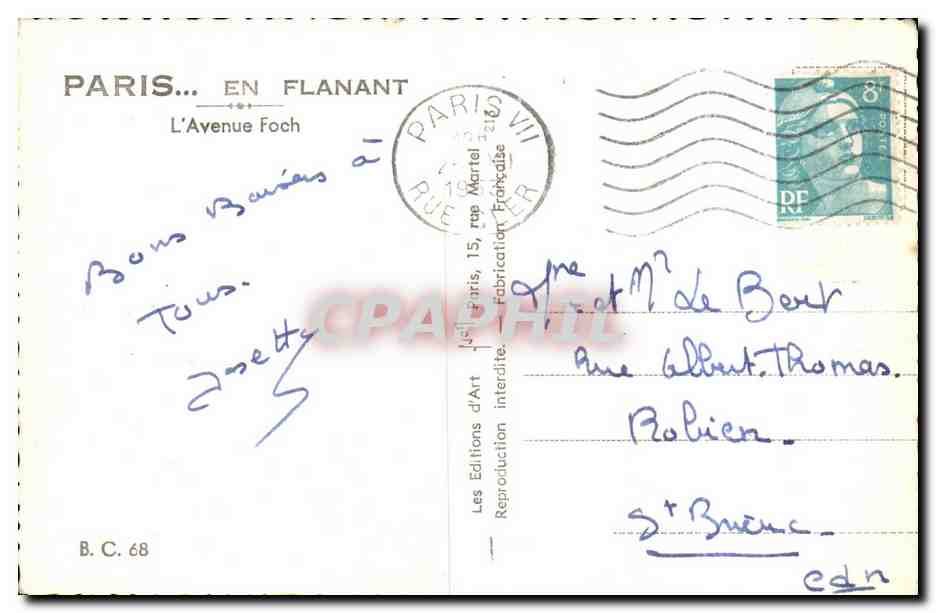 PARIS... EN FLANANT
L'Avenue Foch
Bons Baisers à
Tous.
Josette
B. C. 68
Les Editions d'Art Paris, 15, rue Martel
Reproduction interdite. — Fabrication Française
PARIS VII
RUE
8F
RF
Mme et Mr Le Bert
Rue Albert. Thomas.
Robien -
St Brieuc -
cdn
CPAPHIL